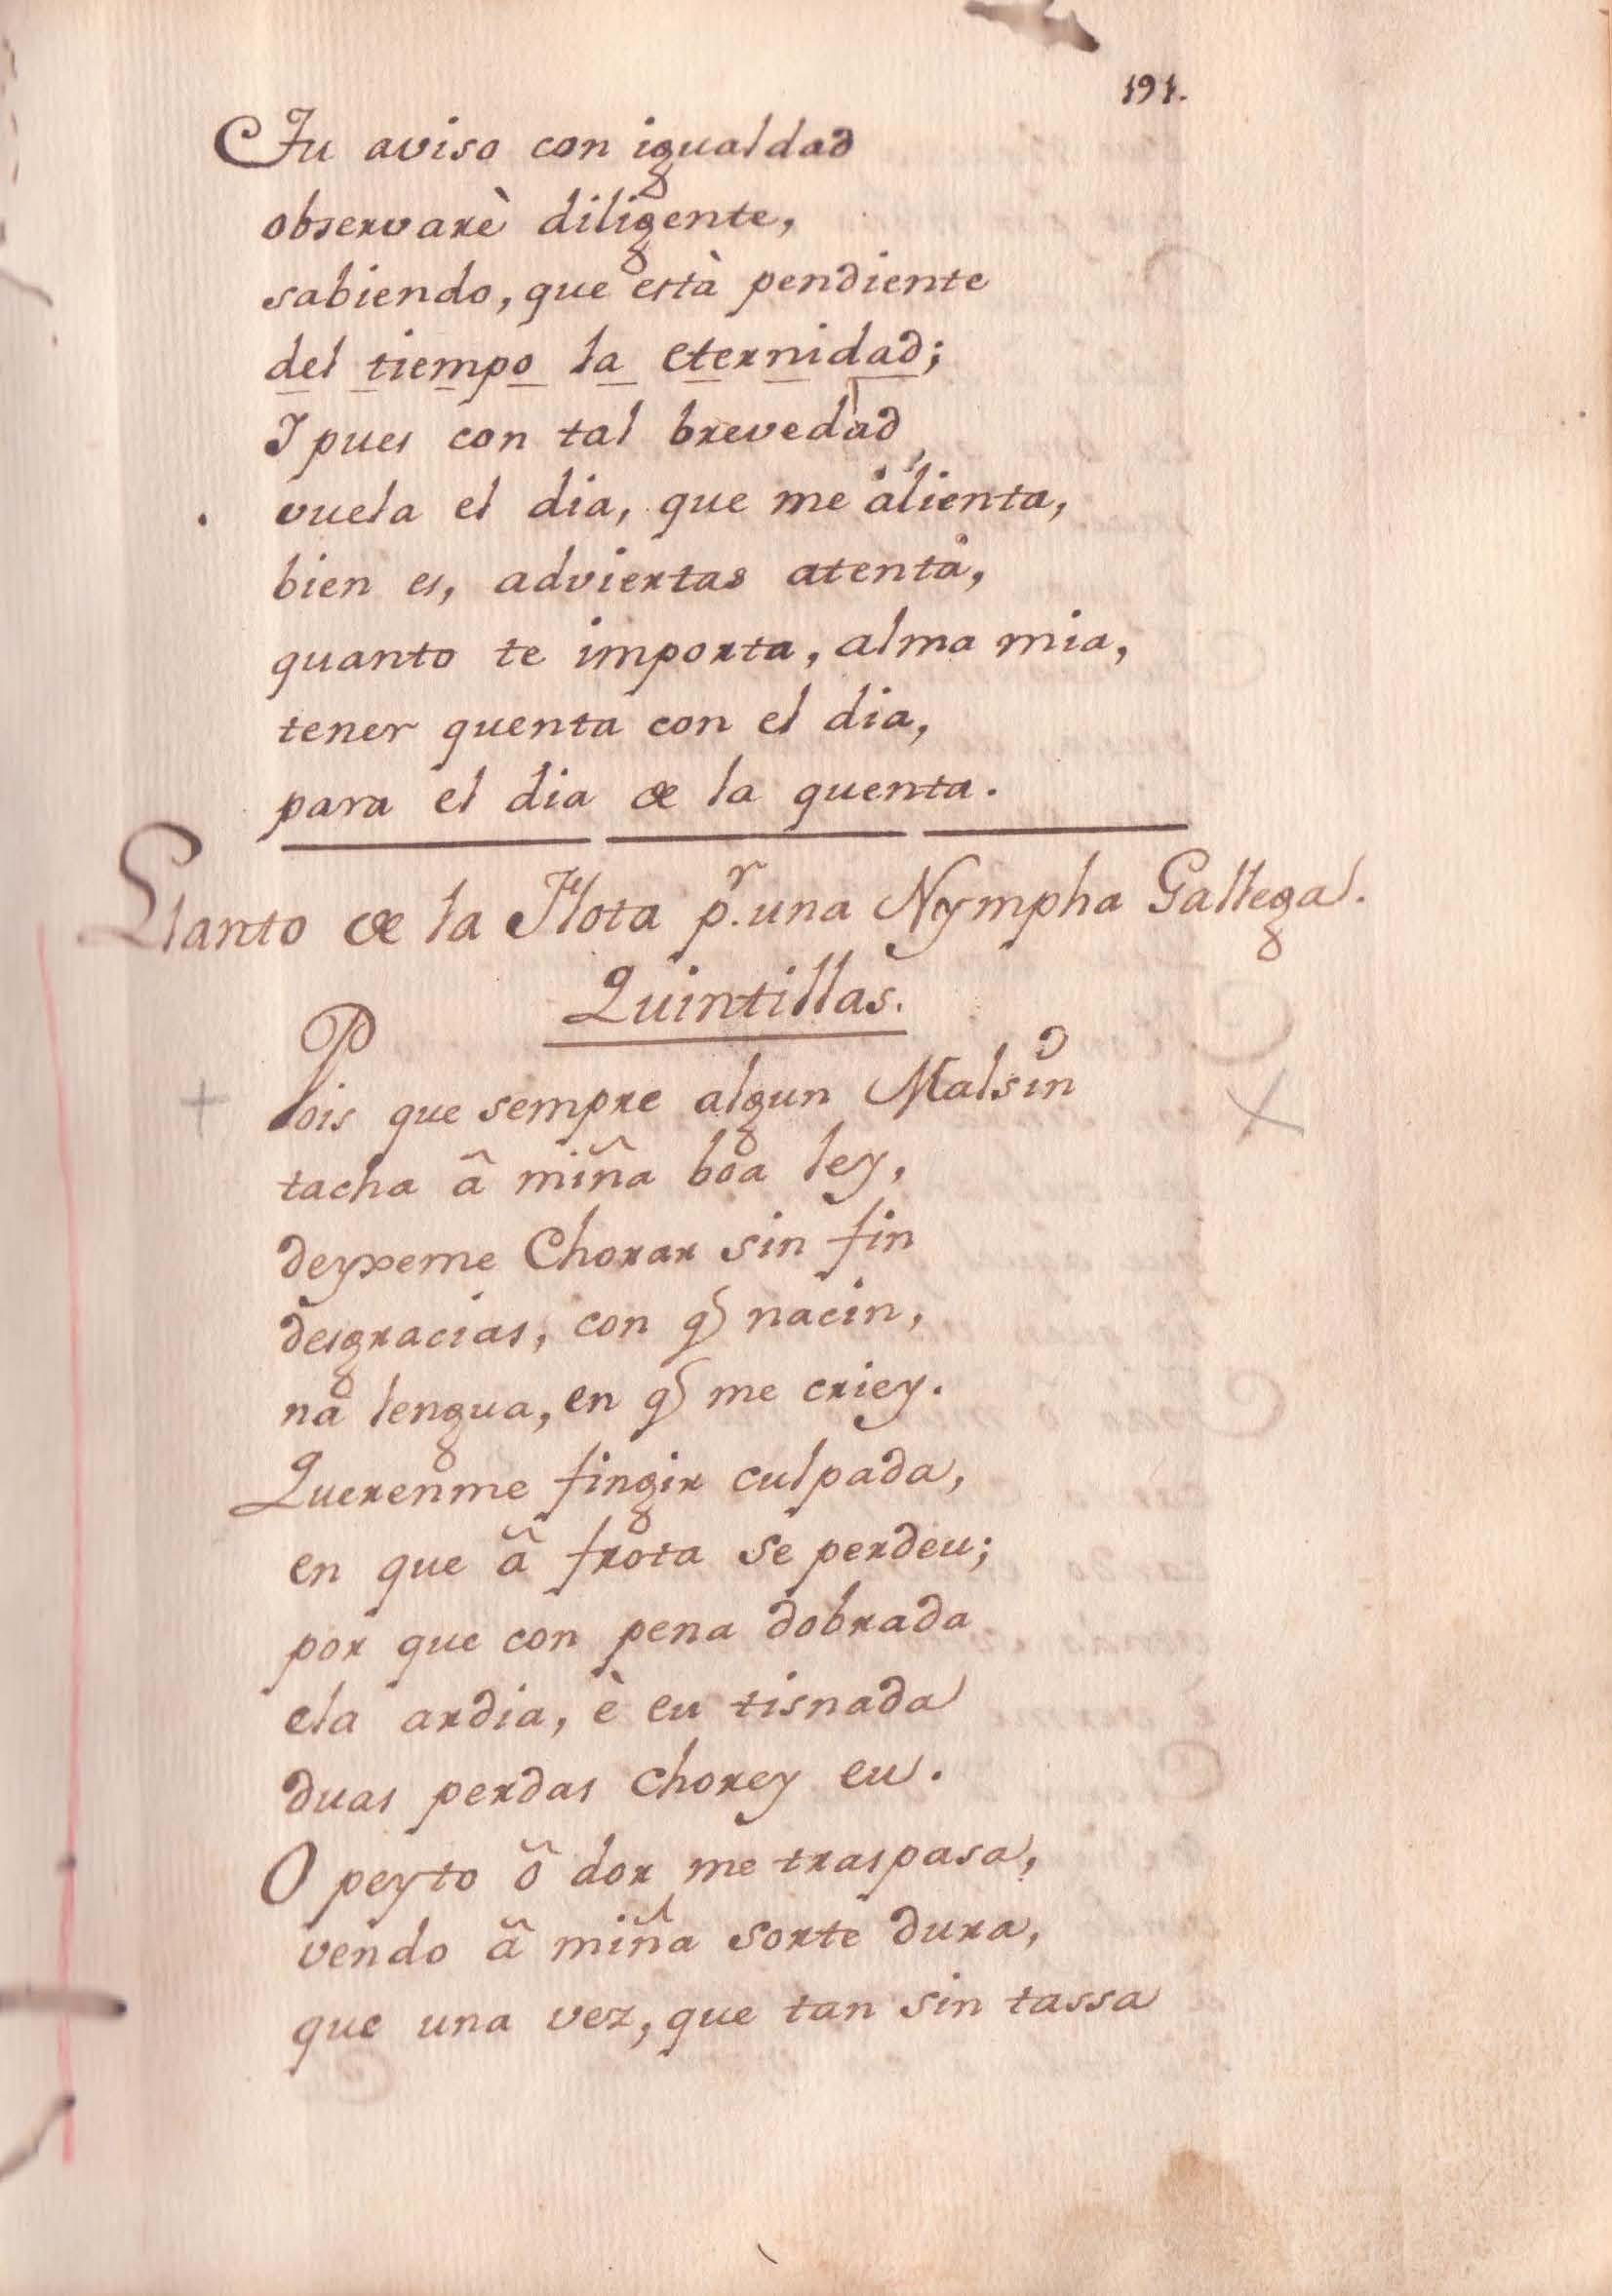 191.
Tu aviso con igualdad
observarè diligente,
sabiendo, que està pendiente
del tiempo la eternidad;
I pues con tal brevedad
vuela el dia, que me alienta,
bien es, adviertas atenta,
quanto te importa, alma mia,
tener quenta con el dia,
para el dia de la quenta.
Llanto de la Flota pr. una Nympha Gallega.
Quintillas.
Pois que sempre algun Malsin
tacha â miña boa ley,
deyxeme Chorar sin fin
desgracias, con q̃ nacin,
na lengua, en q̃ me criey.
Querenme fingir culpada,
en que â frota se perdeu;
por que con pena dobrada
ela ardia, è eu tisnada
duas perdas chorey eu.
O peyto ô dor me traspasa,
vendo â miña sorte dura,
que una vez, que tan sin tassa